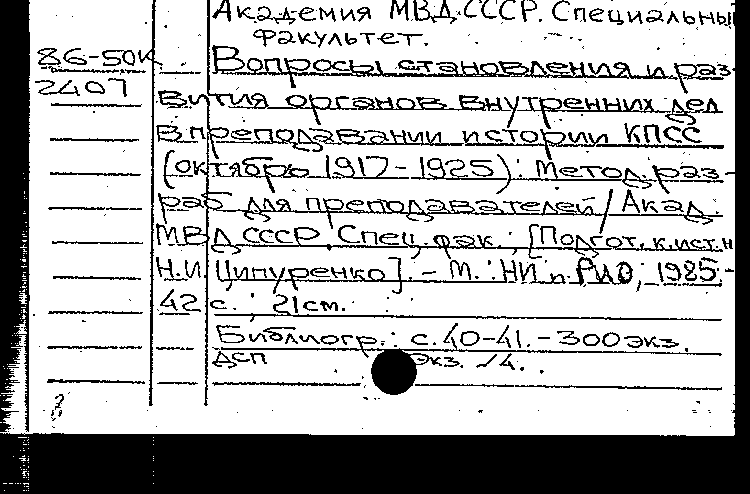 Академия МВД СССР. Специальны
факультет.
86-50к Вопросы становления и раз-
2407 вития органов внутренних дел
в преподавании истории КПСС
(октябрь 1917-1925): Метод. раз-
раб. для преподавателей / Акад.
МВД СССР. Спец. фак.; [Подгот. к.ист.н
Н.И. Ципуренко]. - М.: НИ и РИО, 1985.-
42 с.; 21 см.
Библиогр.: с. 40-41. - 300 экз.
ДСП экз. √4.
8